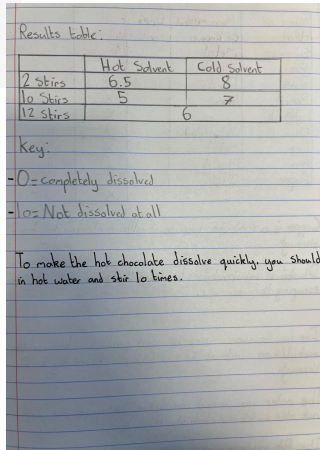 Results table:
Hot Solvent Cold Solvent
2 Stirs 6.5 8
10 Stirs 5 7
12 stirs 6
Key:
-0=completely dissolved
-10= Not dissolved at all
To make the hot chocolate dissolve quickly, you should
in hot water and stir 10 times.